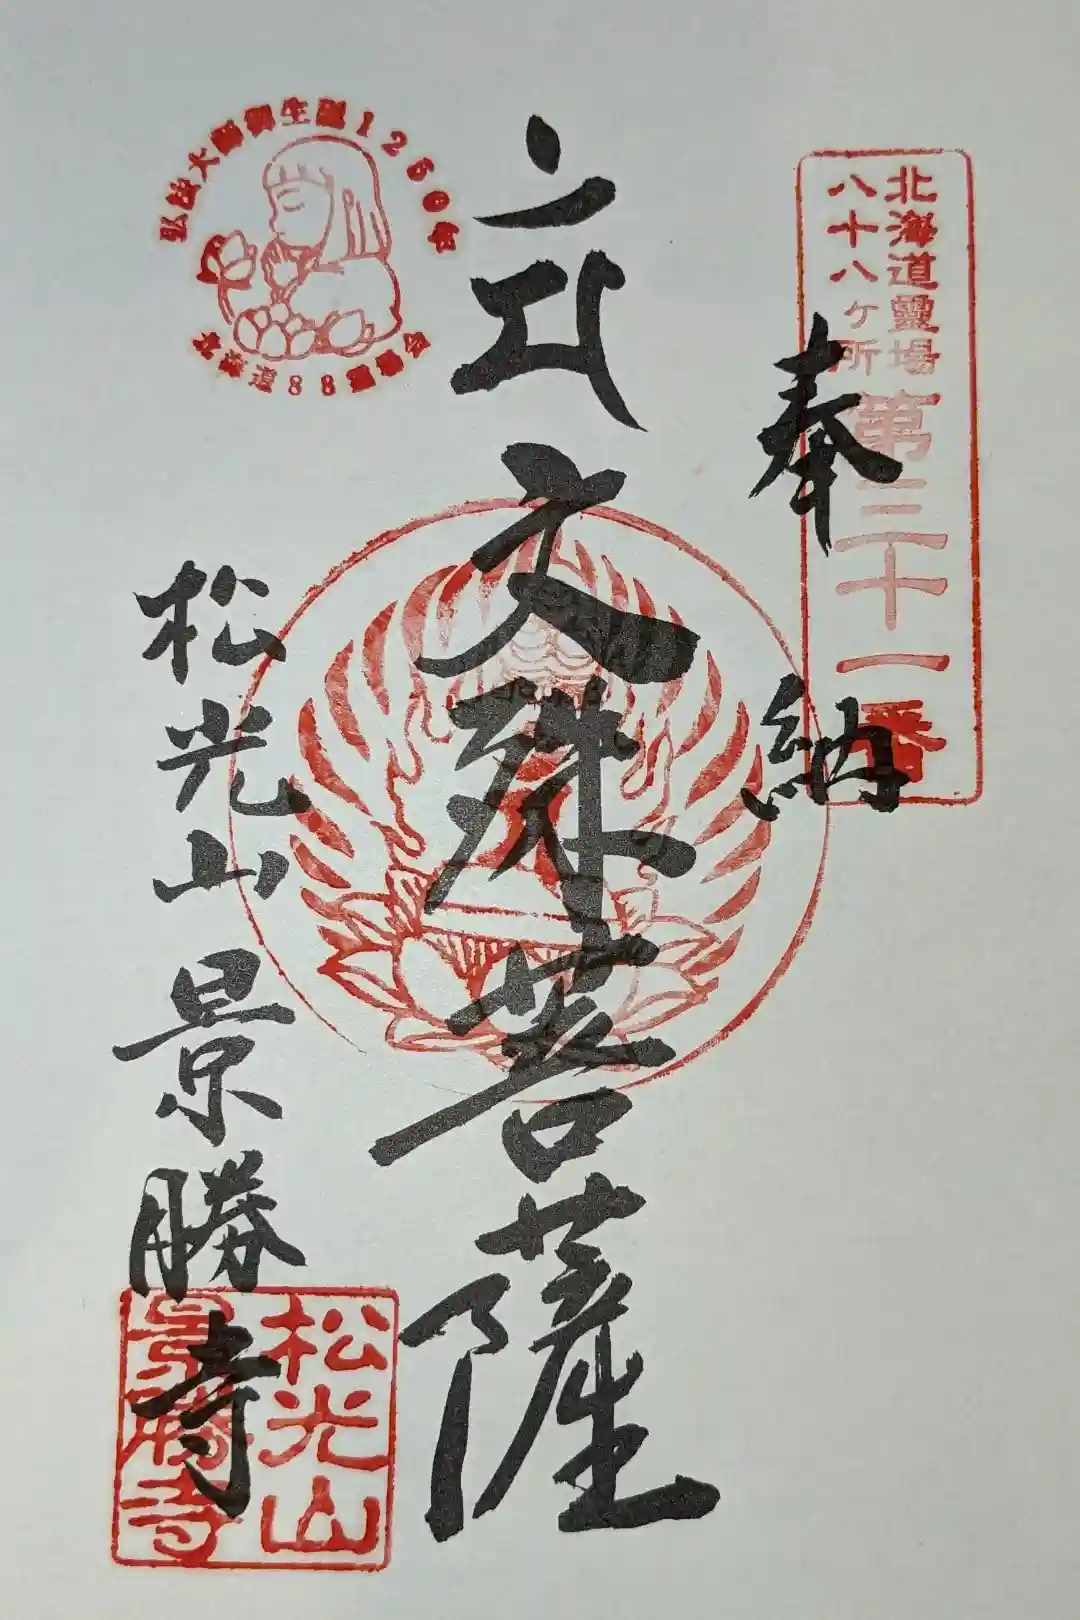 北海道靈場
八十八ヶ所
第三十一番
奉納
文殊菩薩
弘法大師御生誕1250年
北海道88霊場会
松光山 景勝寺
松光山
景勝寺